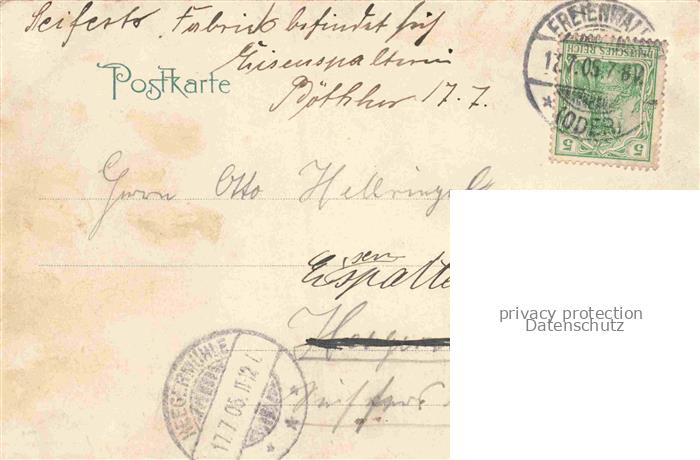 Seiferts Fabrick befindet sich
Eisenspalterei
Böttcher 17. 7.
Postkarte
FREIENWAL
17.7.05.7-8V.
(ODER)
DEUTSCHES REICH
5 5
Herrn Otto Hellrieg
Eisenspalte
HEEGERMÜHLE
17.7.05.11-12V
privacy protection
Datenschutz